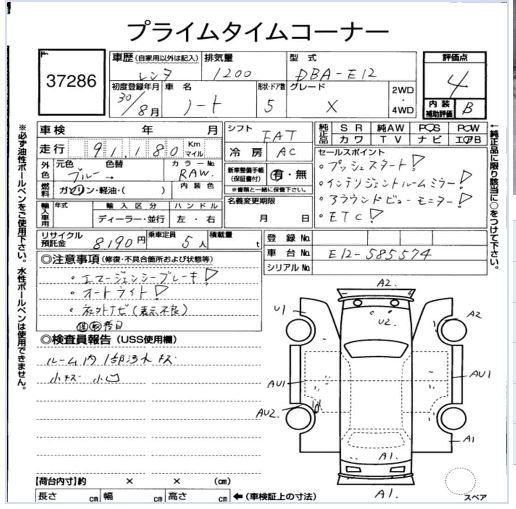 プライムタイムコーナー
37286
車歴 (自家用以外は記入) 排気量 型式
レンタ 1200 DBA-E12
評価点
4
内装補助評価 B
初度登録年月 車名 形状・ドア数 グレード 2WD・4WD
30/8月 ノート 5 X
車検 年 月
走行 91,180 Km マイル
シフト FAT
冷房 AC
純正品 SR 純AW PS PW
革 カワ TV ナビ エアB
元色 色替 カラーNo.
ブルー→ RAW
燃料 ガソリン・軽油・( ) 内装色
新車整備手帳 (保証書付) 有・無
※書類と一緒に保管下さい
名義変更期限
月 日
輸入車用 年式 輸入区分 ハンドル
ディーラー・並行 左・右
リサイクル預託金 8190円 乗車定員 5人 積載量 t
セールスポイント
・プッシュスタート!
・インテリジェントルームミラー!
・アラウンドビューモニター!
・ETC!
登録No.
車台No. E12-585574
シリアルNo.
◎注意事項 (修復・不具合箇所および状態等)
・エマージェンシーブレーキ!
・オートライト!
◎検査員報告 (USS使用欄)
ルーム内 1部汚れ キズ
小キズ 小凹
A2.
U1
U2
A2
AU1
AU1
AU2
A1
A1
A1.
スペア
【荷台内寸】約 × × (cm)
長さ cm 幅 cm 高さ cm ←(車検証上の寸法)
※必ず油性ボールペンをご使用下さい。水性ボールペンは使用できません。
←純正品に限り該当に○をつけて下さい。